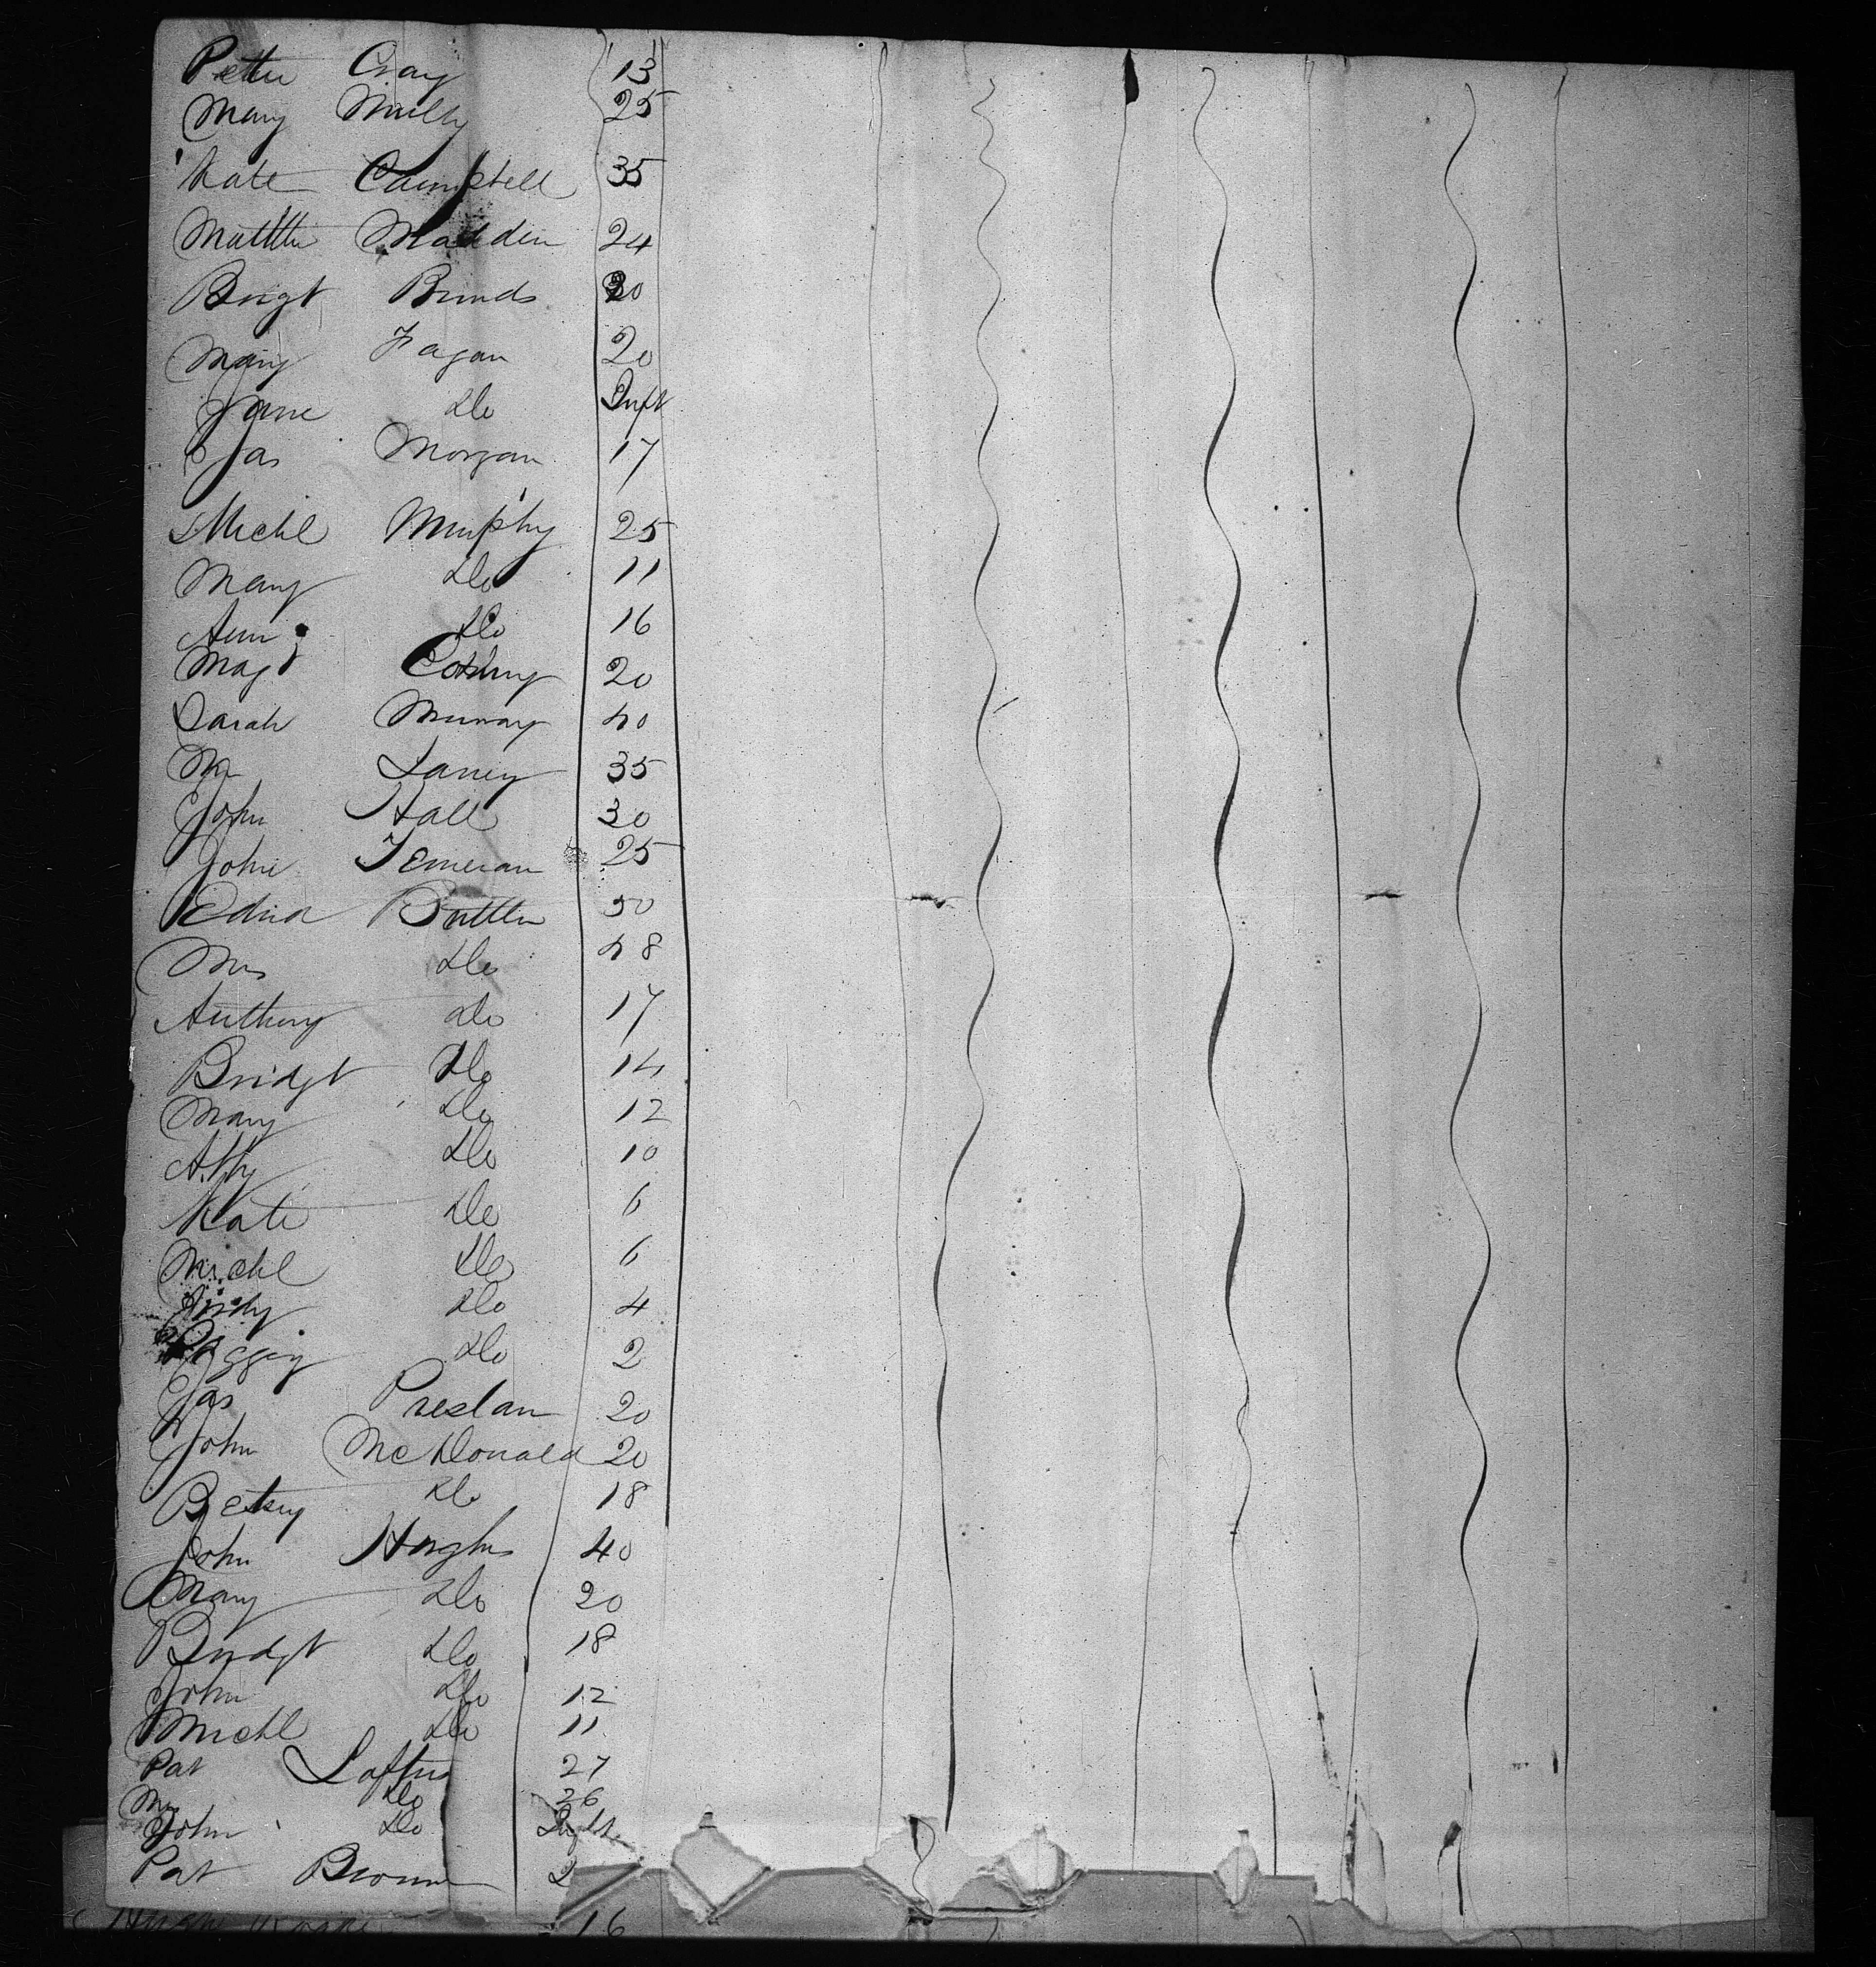 Petter Cray 13
Mary Nully 25
Kate Campbell 35
Matthw Madden 24
Brigt Brinds 30
Mary Fagan 20
Jane Do Inft
Jas Morgan 17
Michl Murphy 25
Mary Do 11
Ann Do 16
Magt 20
Sarah Murray 40
Mr Laney 35
John Hall 30
John 25
Edwd 50
Mrs Do 48
Anthony Do 17
Bridgt Do 14
Mary Do 12
Abby Do 10
Kate Do 6
Michl Do 6
Andy Do 4
Peggy Do 2
Jas Preslan 20
John McDonald 20
Betsy Do 18
John Hughs 40
Mary Do 20
Bridgt Do 18
John Do 12
Michl Do 11
Pat Loftus 27
Mrs Do 26
John Do Inft
Pat Brown 2
16